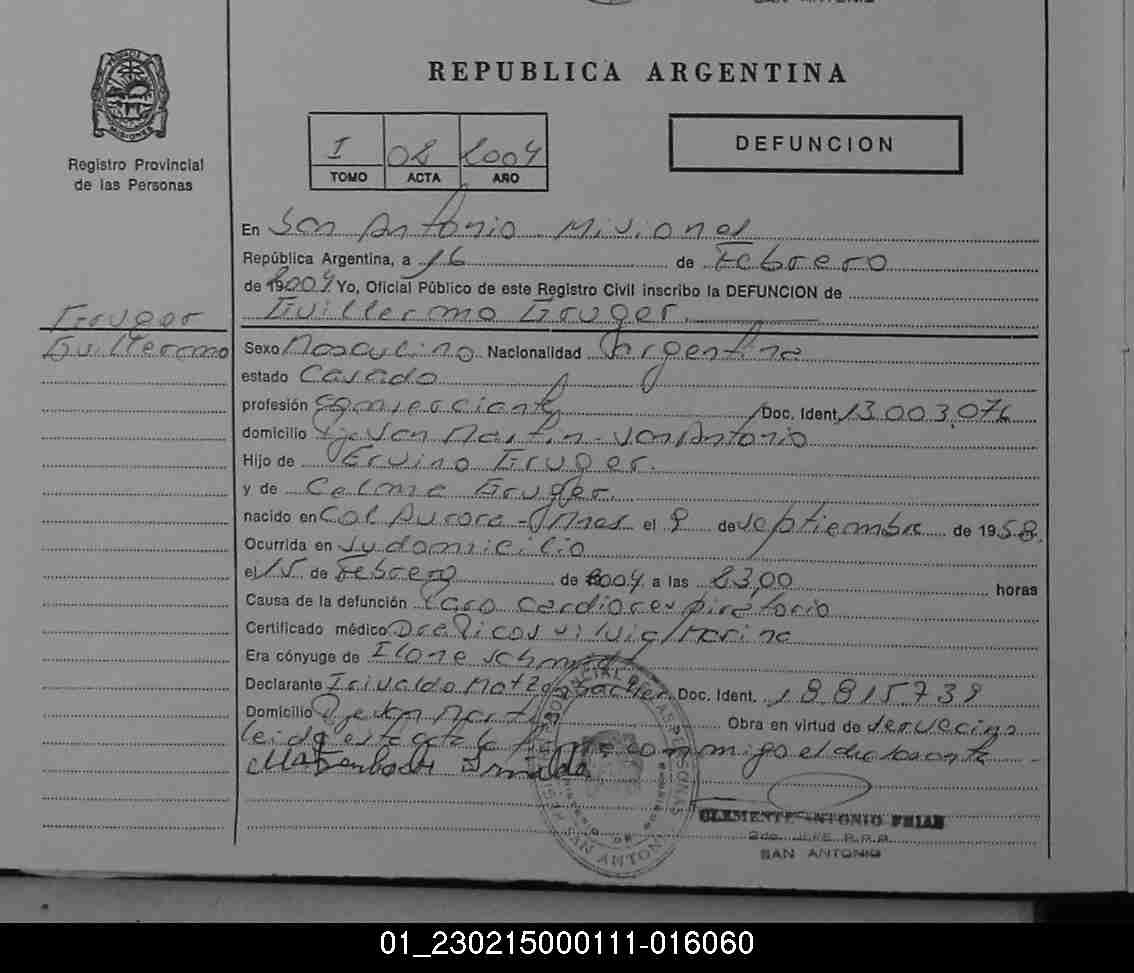 SAN ANTONIO
REPUBLICA ARGENTINA
MISIONES
Registro Provincial
de las Personas
I 08 2004
TOMO ACTA AÑO
DEFUNCION
En San Antonio Misiones
República Argentina, a 16 de Febrero
de 2004 Yo, Oficial Público de este Registro Civil inscribo la DEFUNCION de
Guillermo Gruger
Gruger
Guillermo
Sexo Masculino Nacionalidad Argentina
estado Casado
profesión comerciante Doc. Ident. 13.003.076
domicilio San Martin - San Antonio
Hijo de Ervino Gruger.
y de Celme Gruger.
nacido en Col Aurora - Mnes el 9 de septiembre de 1958.
Ocurrida en su domicilio
el 15 de Febrero de 2004 a las 23,00 horas
Causa de la defunción Paro cardiorespiratorio
Certificado médico
Era cónyuge de Ilone Schmidt
Declarante Irivaldo Doc. Ident. 18815739
Domicilio Obra en virtud de ser vecino
leida esta acta la firma conmigo el declarante
CLEMENTE ANTONIO FRIAS
2do. JEFE R.P.P.
SAN ANTONIO
01_230215000111-016060